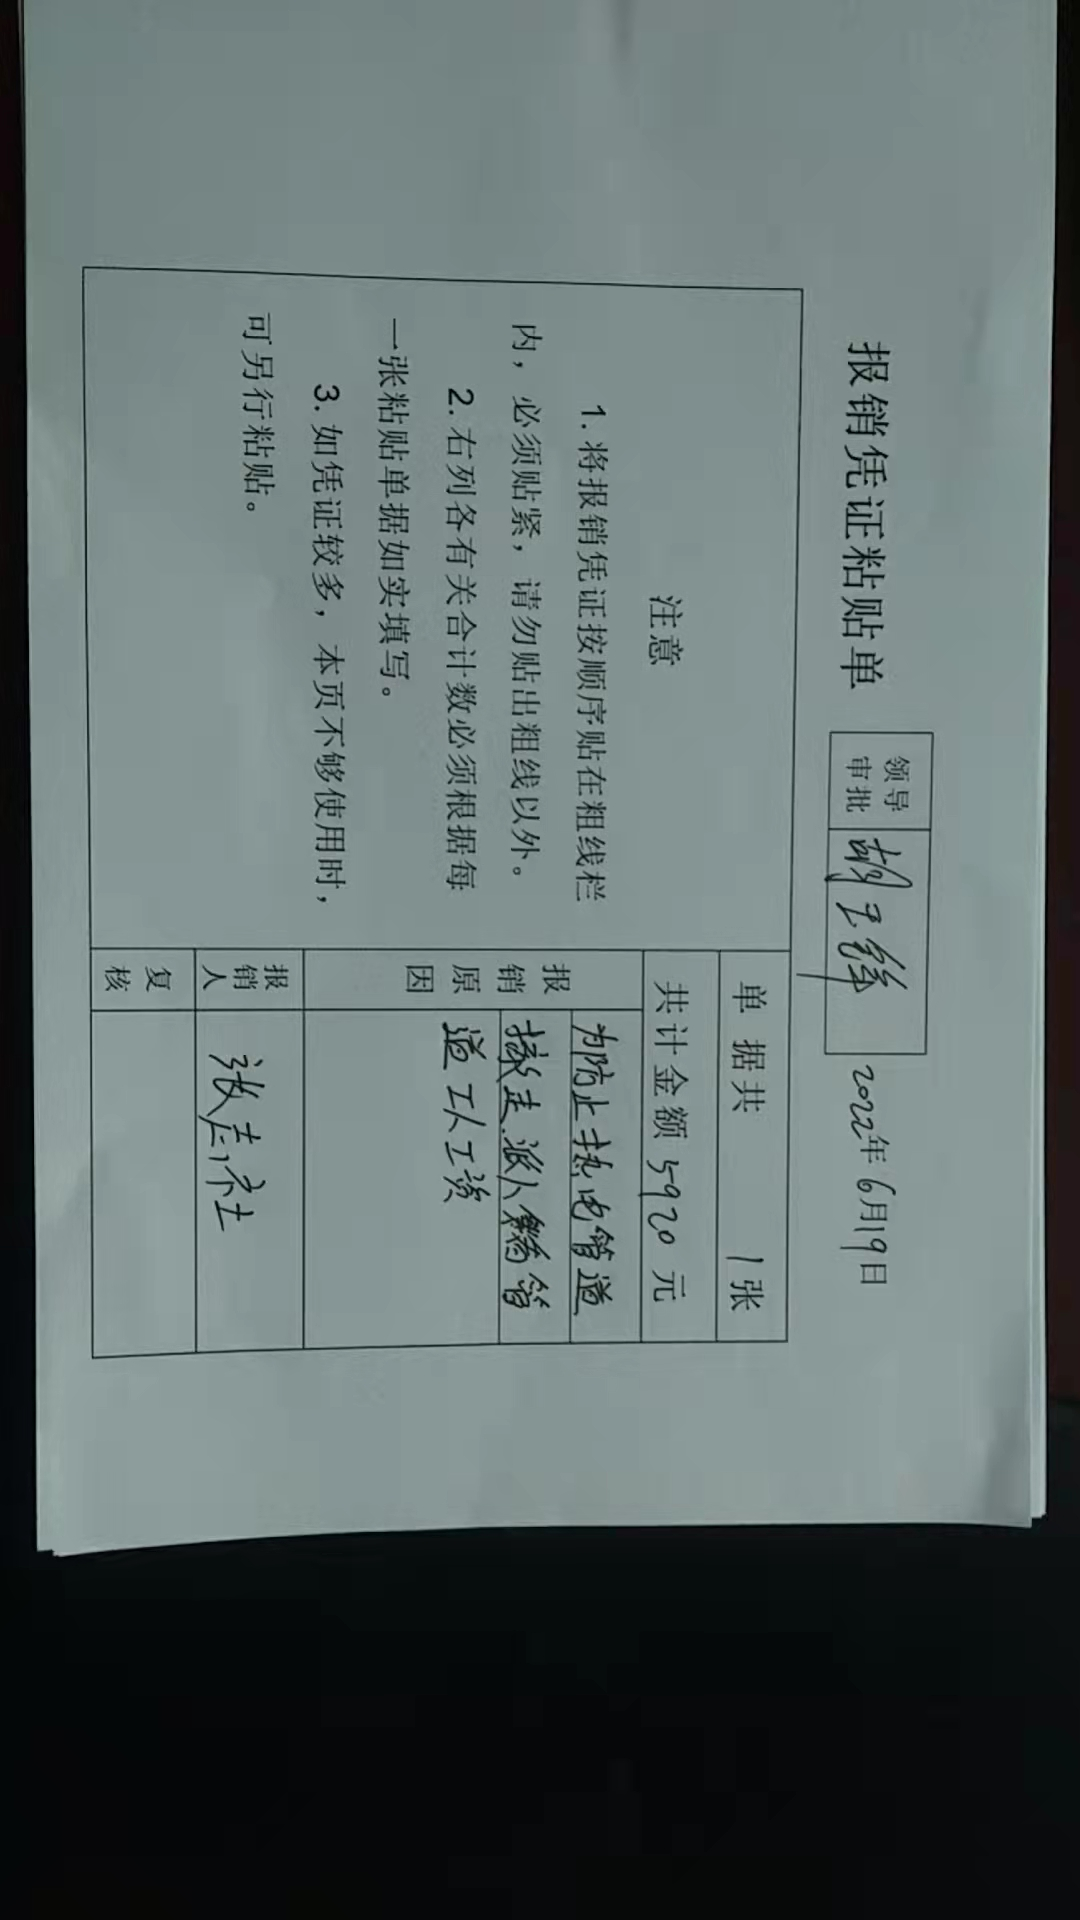 报销凭证粘贴单
领导
审批
2022年6月19日
注意
1. 将报销凭证按顺序贴在粗线栏
内，必须贴紧，请勿贴出粗线以外。
2. 右列各有关合计数必须根据每
一张粘贴单据如实填写。
3. 如凭证较多，本页不够使用时，
可另行粘贴。
单据共 1张
共计金额 5920 元
报销原因
为防止热电管道
走派人 管
道工人工资
报销人
复核